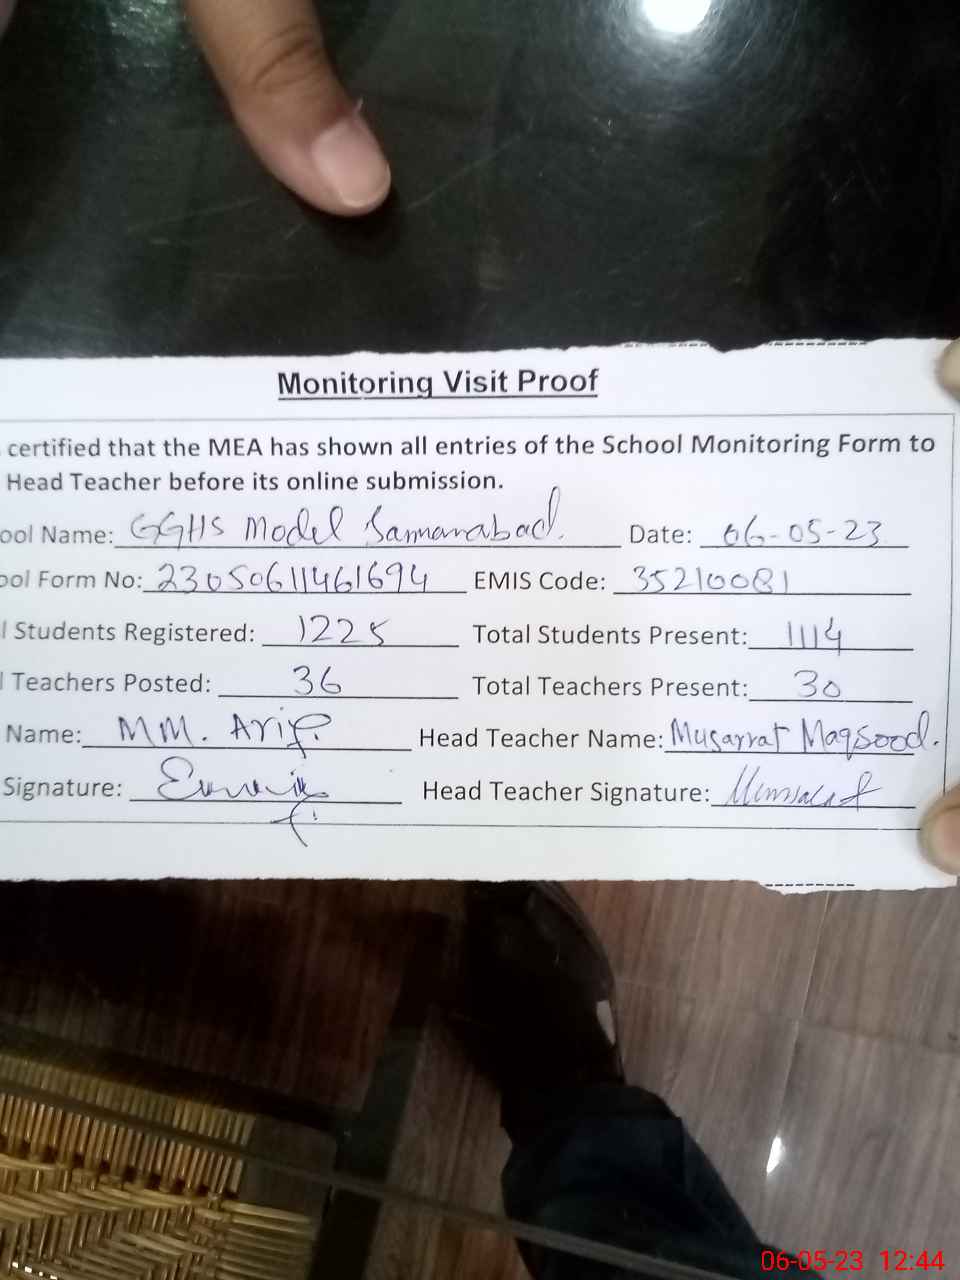 Monitoring Visit Proof
certified that the MEA has shown all entries of the School Monitoring Form to
Head Teacher before its online submission.
ool Name: GGHS Model Samanabad. Date: 06-05-23
ool Form No: 23050611461694 EMIS Code: 35210081
l Students Registered: 1225 Total Students Present: 1114
l Teachers Posted: 36 Total Teachers Present: 30
Name: MM. Arif. Head Teacher Name: Musarrat Maqsood.
Signature: Head Teacher Signature:
06-05-23 12:44